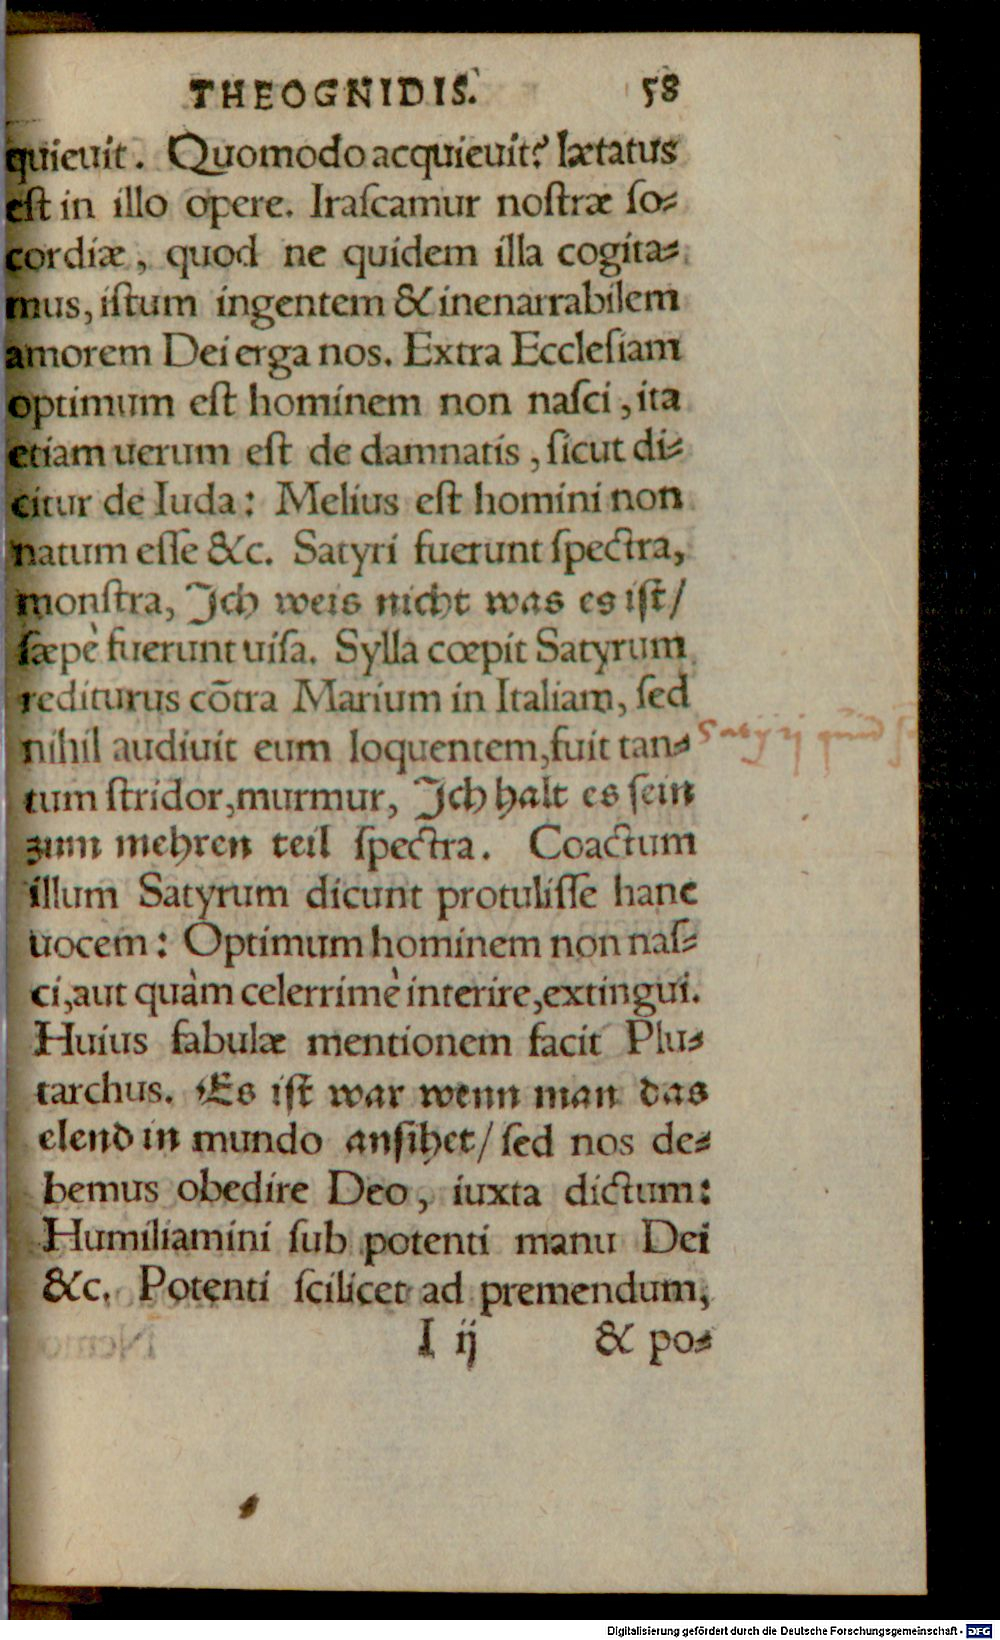 THEOGNIDIS. 58
quieuit. Quomodo acquieuit? lætatus
eſt in illo opere. Iraſcamur noſtræ ſo-
cordiæ, quod ne quidem illa cogita-
mus, iſtum ingentem & inenarrabilem
amorem Dei erga nos. Extra Eccleſiam
optimum eſt hominem non naſci, ita
etiam uerum eſt de damnatis, ſicut di-
citur de Iuda: Melius eſt homini non
natum eſſe &c. Satyri fuerunt ſpectra,
monſtra, Ich weis nicht was es iſt/
ſæpè fuerunt uiſa. Sylla cœpit Satyrum
rediturus cõtra Marium in Italiam, ſed
nihil audiuit eum loquentem, fuit tan-
tum ſtridor, murmur, Ich halt es ſein
zum mehren teil ſpectra. Coactum
illum Satyrum dicunt protuliſſe hanc
uocem: Optimum hominem non naſ-
ci, aut quàm celerrimè interire, extingui.
Huius fabulæ mentionem facit Plu-
tarchus. Es iſt war wenn man das
elend in mundo anſihet/ ſed nos de-
bemus obedire Deo, iuxta dictum:
Humiliamini ſub potenti manu Dei
&c. Potenti ſcilicet ad premendum,
I ij & po-
Satyrj quid
Digitalisierung gefördert durch die Deutsche Forschungsgemeinschaft - DFG